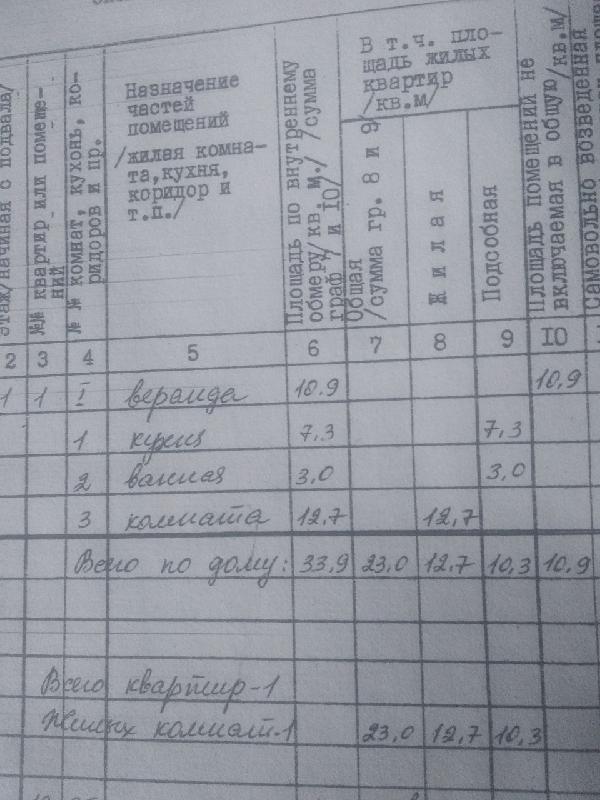 В т.ч. пло-
щадь жилых
квартир
/кв.м/
этаж/начиная с подвала/
№№ квартир или помеще-
ний
№ № комнат, кухонь, ко-
ридоров и пр.
Назначение
частей
помещений
/жилая комна-
та, кухня,
коридор и
т.п./
Площадь по внутреннему
обмеру/кв. м./ /сумма
граф 7 и 10/
Общая
/сумма гр. 8 и 9/
Жилая
Подсобная
Площадь помещений не
включаемая в общую/кв.м/
Самовольно возведенная
2 3 4 5 6 7 8 9 10
1 1 I веранда 10.9 10,9
1 кухня 7,3 7,3
2 ванная 3,0 3,0
3 комната 12,7 12,7
Всего по дому: 33,9 23,0 12,7 10,3 10,9
Всего квартир-1
Жилых комнат-1 23,0 12,7 10,3